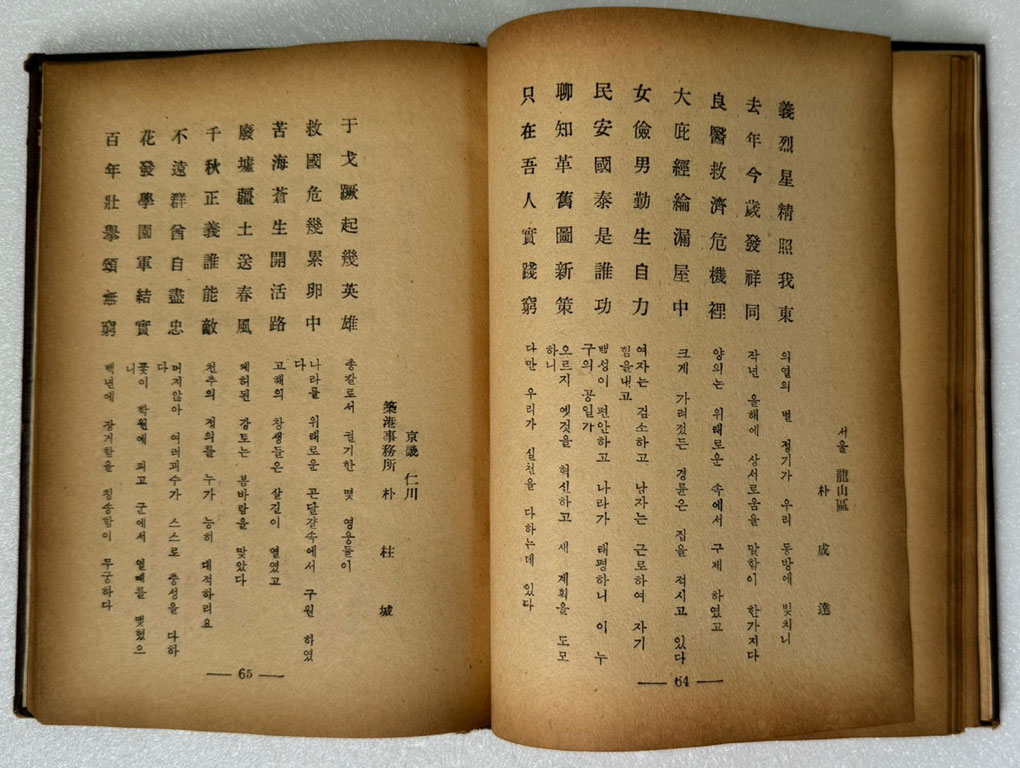 서울 龍山區
朴 成 達
義烈星精照我東
去年今歲發祥同
良醫救濟危機裡
大庇經綸漏屋中
女儉男勤生自力
民安國泰是誰功
聊知革舊圖新策
只在吾人實踐窮
의열의 별 정기가 우리 동방에 빛치니
작년 올해에 상서로움을 말함이 한가지다
양의는 위태로운 속에서 구제 하였고
크게 가려졌든 경륜은 집을 적시고 있다
여자는 검소하고 남자는 근로하여 자기
힘을내고
백성이 편안하고 나라가 태평하니 이 누
구의 공일가
오르지 옛것을 혁신하고 새 계획을 도모
하니
다만 우리가 실천을 다하는데 있다
— 64 —
京畿 仁川
築港事務所 朴 柱 城
于戈蹶起幾英雄
救國危幾累卵中
苦海蒼生開活路
廢墟疆土送春風
千秋正義誰能敵
不遠群酋自盡忠
花發學園軍結實
百年壯擧頌無窮
총칼로서 궐기한 몇 영웅들이
나라를 위태로운 곤달걀속에서 구원 하였
다
고해의 창생들은 살길이 열였고
폐허된 강토는 봄바람을 맞았다
천추의 정의를 누가 능히 대적하리요
머지않아 여러괴수가 스스로 충성을 다하
다
꽃이 학원에 피고 군에서 열매를 맺혔으
니
백년에 장거함을 칭송함이 무궁하다
— 65 —